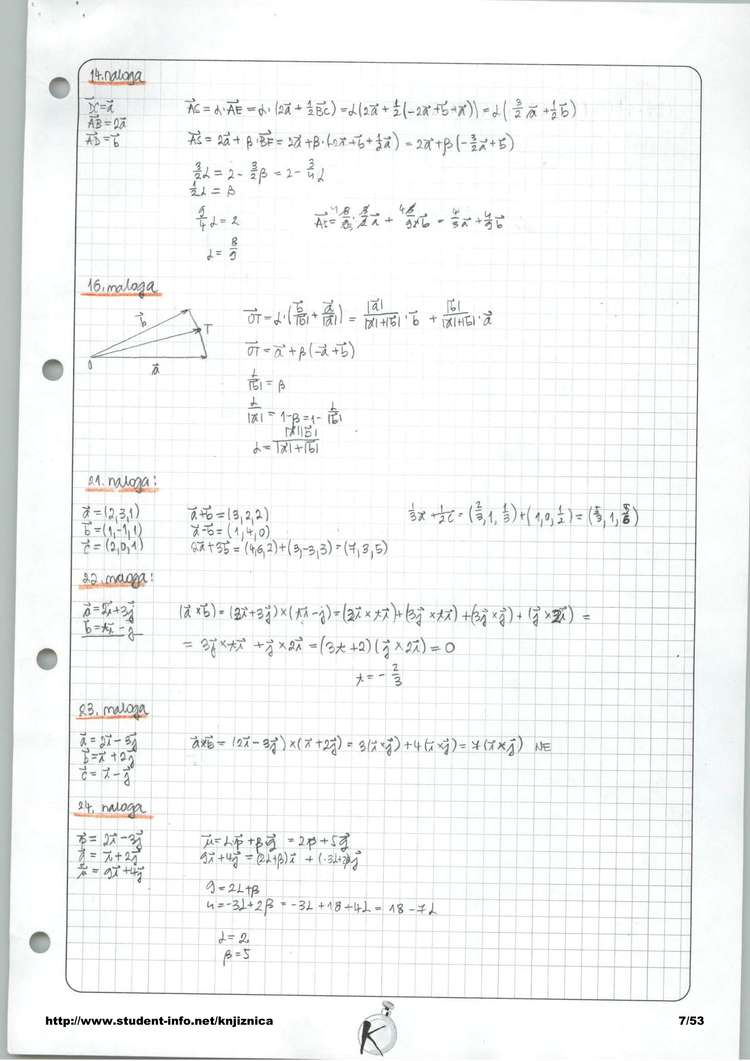 14. naloga
DC⃗ = a⃗
AB⃗ = 2a⃗
AD⃗ = b⃗
AS⃗ = α·AE⃗ = α·(2a⃗ + ½BC⃗) = α(2a⃗ + ½(-2a⃗ + b⃗ + a⃗)) = α(3/2 a⃗ + ½b⃗)
AS⃗ = 2a⃗ + β·BF⃗ = 2a⃗ + β·(-2a⃗ + b⃗ + ½a⃗) = 2a⃗ + β(-3/2 a⃗ + b⃗)
3/2 α = 2 - 3/2 β = 2 - 3/4 α
½α = β
9/4 α = 2
α = 8/9
= 4/3 a⃗ + 4/9 b⃗
16. naloga
b⃗
T
O
a⃗
OT⃗ = α·(b⃗/|b⃗| + a⃗/|a⃗|) = |a⃗|/(|a⃗|+|b⃗|)·b⃗ + |b⃗|/(|a⃗|+|b⃗|)·a⃗
OT⃗ = a⃗ + β(-a⃗ + b⃗)
α/|b⃗| = β
α/|a⃗| = 1-β = 1 - α/|b⃗|
α = |a⃗||b⃗|/(|a⃗|+|b⃗|)
21. naloga:
a⃗ = (2,3,1)
b⃗ = (1,-1,1)
c⃗ = (2,0,1)
a⃗+b⃗ = (3,2,2)
a⃗-b⃗ = (1,4,0)
2a⃗+3b⃗ = (4,6,2)+(3,-3,3) = (7,3,5)
⅓a⃗ + ½c⃗ = (⅔,1,⅓)+(1,0,½) = (5/3,1,5/6)
22. naloga:
a⃗ = 2i⃗+3j⃗
b⃗ = ti⃗ - j⃗
(a⃗×b⃗) = (2i⃗+3j⃗)×(ti⃗-j⃗) = (2i⃗×ti⃗)+(3j⃗×ti⃗)+(3j⃗×j⃗)+(j⃗×2i⃗) =
= 3j⃗×ti⃗ + j⃗×2i⃗ = (3t+2)(j⃗×2i⃗) = 0
t = -2/3
23. naloga
a⃗ = 2i⃗-3j⃗
b⃗ = i⃗+2j⃗
c⃗ = i⃗-j⃗
a⃗×b⃗ = (2i⃗-3j⃗)×(i⃗+2j⃗) = 3(i⃗×j⃗)+4(i⃗×j⃗) = 7(i⃗×j⃗) NE
24. naloga
p⃗ = 2i⃗-3j⃗
q⃗ = i⃗+2j⃗
r⃗ = 9i⃗+4j⃗
= αp⃗+βq⃗ = 2p⃗+5q⃗
9i⃗+4j⃗ = (2α+β)i⃗ + (-3α+2β)j⃗
9 = 2α+β
4 = -3α+2β = -3α+18+4α = 18-7α
α = 2
β = 5
http://www.student-info.net/knjiznica
K
7/53